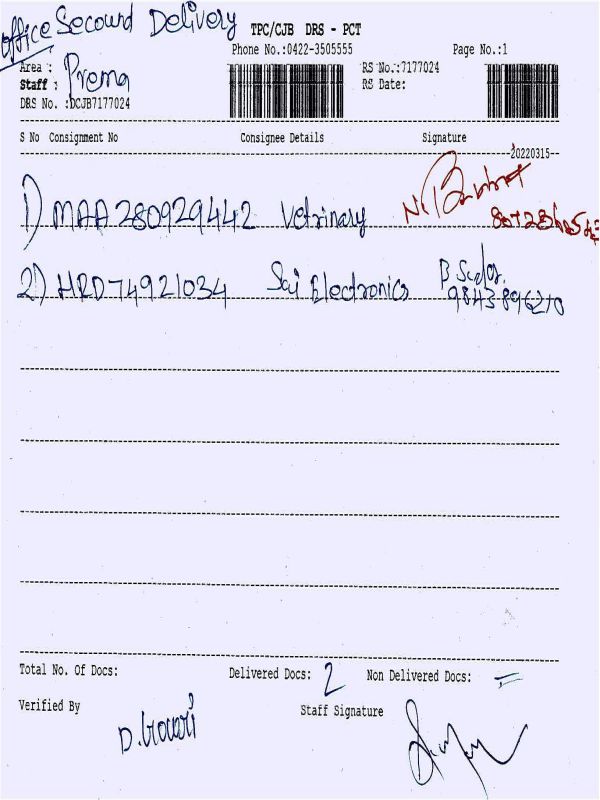 office Secound Delivery
TPC/CJB DRS - PCT
Phone No.:0422-3505555 Page No.:1
Area : RS No.:7177024
Staff : Prema RS Date:
DRS No. :DCJB7177024
S No Consignment No Consignee Details Signature
20220315
1) MAA 280929442 Vetrinary
2) HRD74921034 Sai Electronics
9843896210
Total No. Of Docs: Delivered Docs: 2 Non Delivered Docs: =
Verified By Staff Signature
D. Gowri